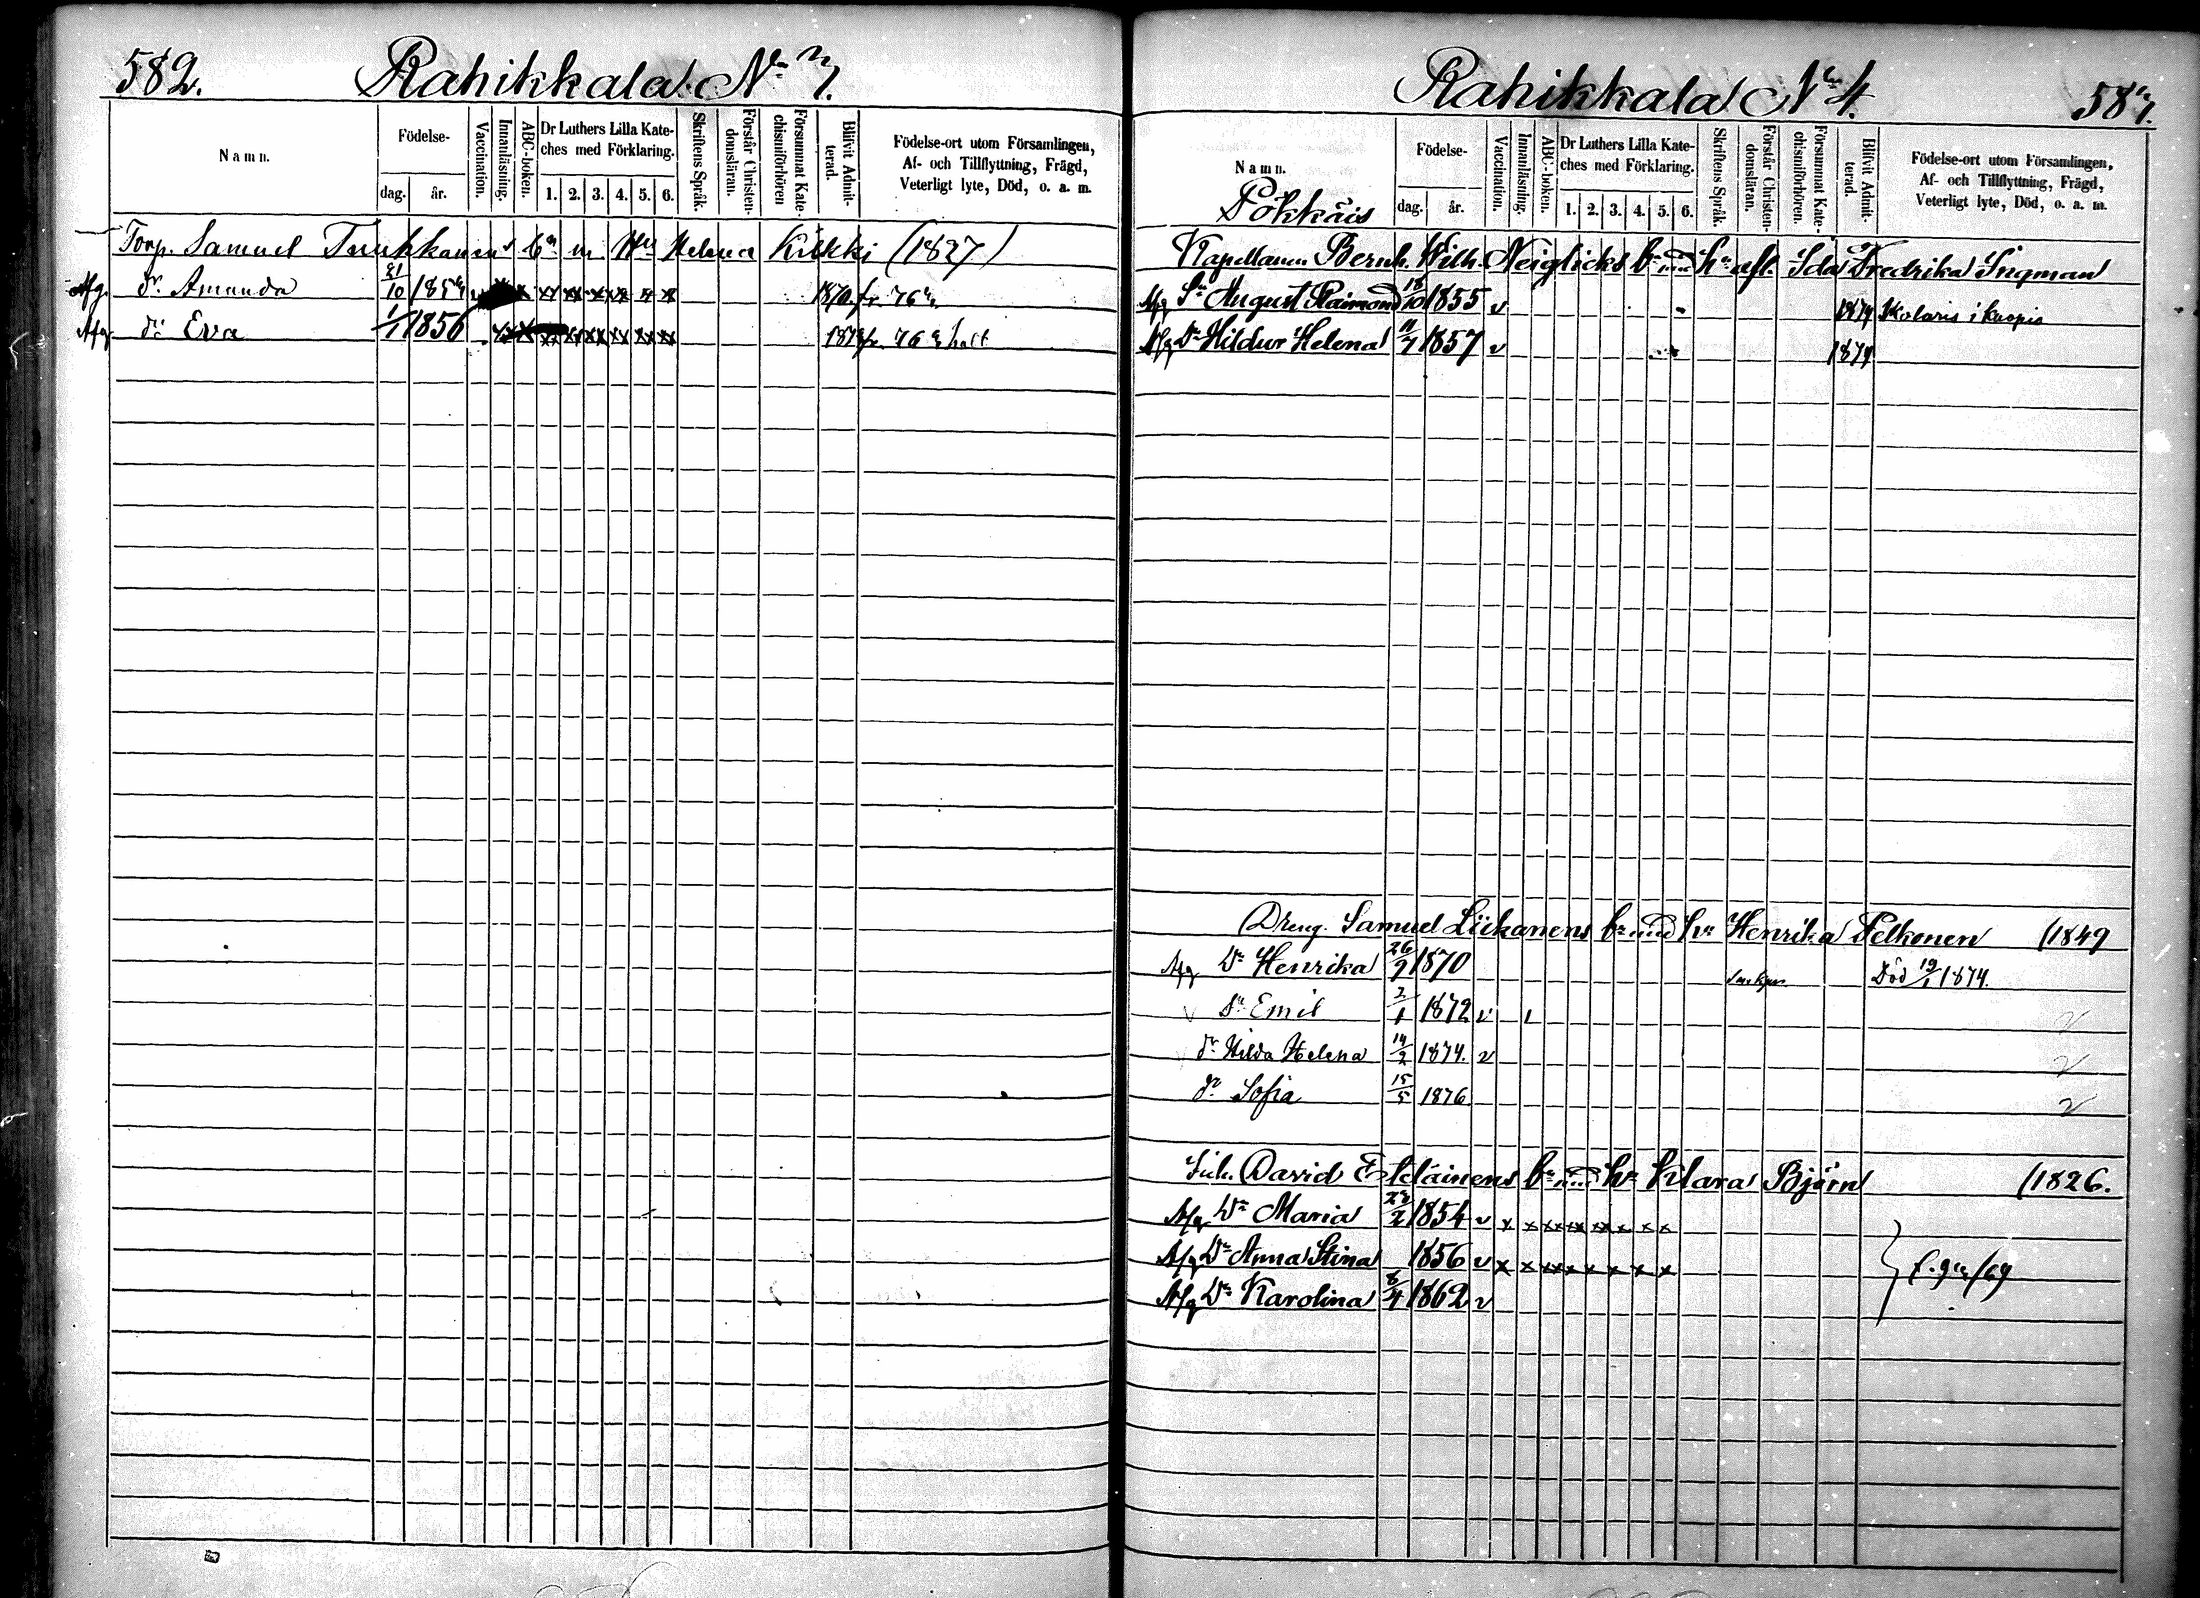 582. Rahikkala No 3.
Namn. Födelse- dag. år. Vaccination. Innanläsning. ABC-boken. Dr Luthers Lilla Kateches med Förklaring. 1. 2. 3. 4. 5. 6. Skriftens Språk. Förstår Christendomsläran. Försummat Katechismiförhören Blifvit Admitterad. Födelse-ort utom Församlingen, Af- och Tillflyttning, Frägd, Veterligt lyte, Död, o. a. m.
Torp. Samuel bn m. Hu Helena Kukki (1827)
Afg. dr Amanda 31/10 1853 x x x x x x
Afg dr Eva 1/1 1856 x x x x x x halt
Rahikkala No 4. 583.
Namn. Födelse- dag. år. Vaccination. Innanläsning. ABC-boken. Dr Luthers Lilla Kateches med Förklaring. 1. 2. 3. 4. 5. 6. Skriftens Språk. Förstår Christendomsläran. Försummat Katechismiförhören. Blifvit Admitterad. Födelse-ort utom Församlingen, Af- och Tillflyttning, Frägd, Veterligt lyte, Död, o. a. m.
Pökkäis
Kapellanen Bernh. Wilh. Neiglicks bn med hu afl. Ida Fredrika Ingman
Afg Sn August Raimond 18/10 1855 v
Afg Dr Hildur Helena 11/7 1857 v
Dreng. Samuel Liikanens bn med hu Henrika Pelkonen (1849
Afg Dr Henrika 26/9 1870 Död 19/1 1874.
v Sn Emil 2/1 1872 v 1 v
v dr Hilda Helena 14/2 1874. v v
dr Sofia 15/5 1876 v
Inh. David Eteläinens bn med hu Klara Björn (1826.
Afg Dr Maria 1854 v x x x x x x x x
Afg Dr Anna Stina 1856 v x x x x x x x x
Afg Dr Karolina 8/4 1862 v